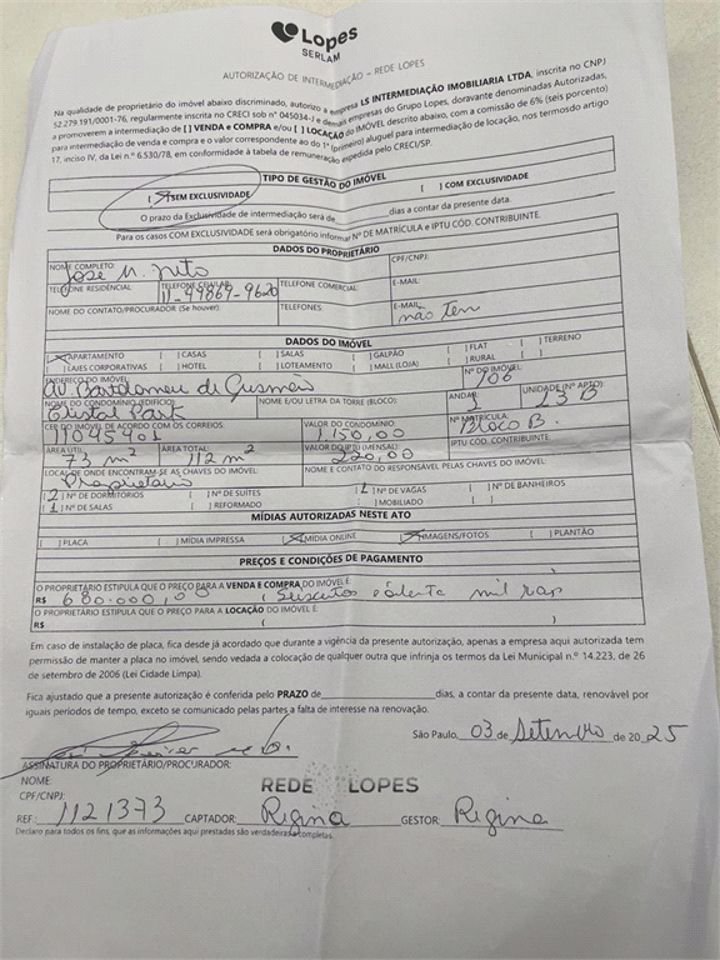 Lopes
SERLAM
AUTORIZAÇÃO DE INTERMEDIAÇÃO – REDE LOPES
Na qualidade de proprietário do imóvel abaixo discriminado, autorizo a empresa LS INTERMEDIAÇÃO IMOBILIARIA LTDA, inscrita no CNPJ
52.279.191/0001-76, regularmente inscrita no CRECI sob nº 045034-J e demais empresas do Grupo Lopes, doravante denominadas Autorizadas,
a promoverem a intermediação de [ ] VENDA e COMPRA e/ou [ ] LOCAÇÃO do IMÓVEL descrito abaixo, com a comissão de 6% (seis porcento)
para intermediação de venda e compra e o valor correspondente ao do 1º (primeiro) aluguel para intermediação de locação, nos termosdo artigo
17, inciso IV, da Lei n.º 6.530/78, em conformidade à tabela de remuneração expedida pelo CRECI/SP.
TIPO DE GESTÃO DO IMÓVEL
[ X ] SEM EXCLUSIVIDADE [ ] COM EXCLUSIVIDADE
O prazo da Exclusividade de intermediação será de ____ dias a contar da presente data.
Para os casos COM EXCLUSIVIDADE será obrigatório informar Nº DE MATRÍCULA e IPTU CÓD. CONTRIBUINTE.
DADOS DO PROPRIETÁRIO
NOME COMPLETO: José M. Neto CPF/CNPJ:
TELEFONE RESIDENCIAL TELEFONE CELULAR: 11-99869-9620 TELEFONE COMERCIAL E-MAIL:
NOME DO CONTATO/PROCURADOR (Se houver): TELEFONES: E-MAIL: não tem
DADOS DO IMÓVEL
[ X ] APARTAMENTO [ ] CASAS [ ] SALAS [ ] GALPÃO [ ] FLAT [ ] TERRENO
[ ] LAJES CORPORATIVAS [ ] HOTEL [ ] LOTEAMENTO [ ] MALL (LOJA) [ ] RURAL [ ]
ENDEREÇO DO IMÓVEL: Av. Bartolomeu de Gusmão Nº DO IMÓVEL: 106
NOME DO CONDOMÍNIO (EDIFÍCIO): Cristal Park NOME E/OU LETRA DA TORRE (BLOCO): ANDAR: 1 UNIDADE (Nº APTO): 13 B
CEP DO IMÓVEL DE ACORDO COM OS CORREIOS: 11045401 VALOR DO CONDOMÍNIO: 1.150,00 Nº MATRÍCULA: Bloco B.
ÁREA ÚTIL: 73 m² ÁREA TOTAL: 112 m² VALOR DO IPTU (MENSAL): 220,00 IPTU CÓD. CONTRIBUINTE:
LOCAL DE ONDE ENCONTRAM-SE AS CHAVES DO IMÓVEL: Proprietario NOME E CONTATO DO RESPONSÁVEL PELAS CHAVES DO IMÓVEL:
[ 2 ] Nº DE DORMITÓRIOS [ ] Nº DE SUÍTES [ 1 ] Nº DE VAGAS [ ] Nº DE BANHEIROS
[ 1 ] Nº DE SALAS [ ] REFORMADO [ ] MOBILIADO [ ]
MÍDIAS AUTORIZADAS NESTE ATO
[ ] PLACA [ ] MÍDIA IMPRESSA [ X ] MÍDIA ONLINE [ X ] IMAGENS/FOTOS [ ] PLANTÃO
PREÇOS E CONDIÇÕES DE PAGAMENTO
O PROPRIETÁRIO ESTIPULA QUE O PREÇO PARA A VENDA E COMPRA DO IMÓVEL É:
R$ 680.000,00 ( mil )
O PROPRIETÁRIO ESTIPULA QUE O PREÇO PARA A LOCAÇÃO DO IMÓVEL É:
R$ ( )
Em caso de instalação de placa, fica desde já acordado que durante a vigência da presente autorização, apenas a empresa aqui autorizada tem
permissão de manter a placa no imóvel, sendo vedada a colocação de qualquer outra que infrinja os termos da Lei Municipal n.º 14.223, de 26
de setembro de 2006 (Lei Cidade Limpa).
Fica ajustado que a presente autorização é conferida pelo PRAZO de____ dias, a contar da presente data, renovável por
iguais períodos de tempo, exceto se comunicado pelas partes a falta de interesse na renovação.
São Paulo, 03 de Setembro de 2025
ASSINATURA DO PROPRIETÁRIO/PROCURADOR:
NOME:
CPF/CNPJ:
REDE LOPES
REF.: 1121373 CAPTADOR: Regina GESTOR: Regina
Declaro para todos os fins, que as informações aqui prestadas são verdadeiras e completas.